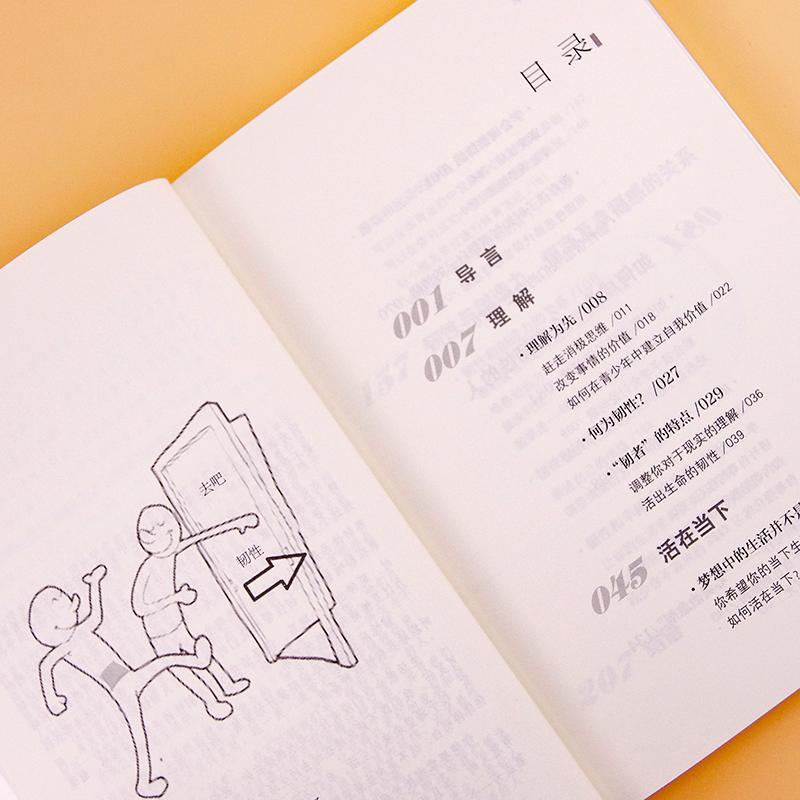 去吧
韧性
目录
001 导言
007 理解
·理解为先 /008
赶走消极思维 /011
改变事情的价值 /018
如何在青少年中建立自我价值 /022
·何为韧性? /027
·“韧者”的特点 /029
调整你对于现实的理解 /036
活出生命的韧性 /039
045 活在当下
·梦想中的生活并不是
你希望你的当下生
如何活在当下?